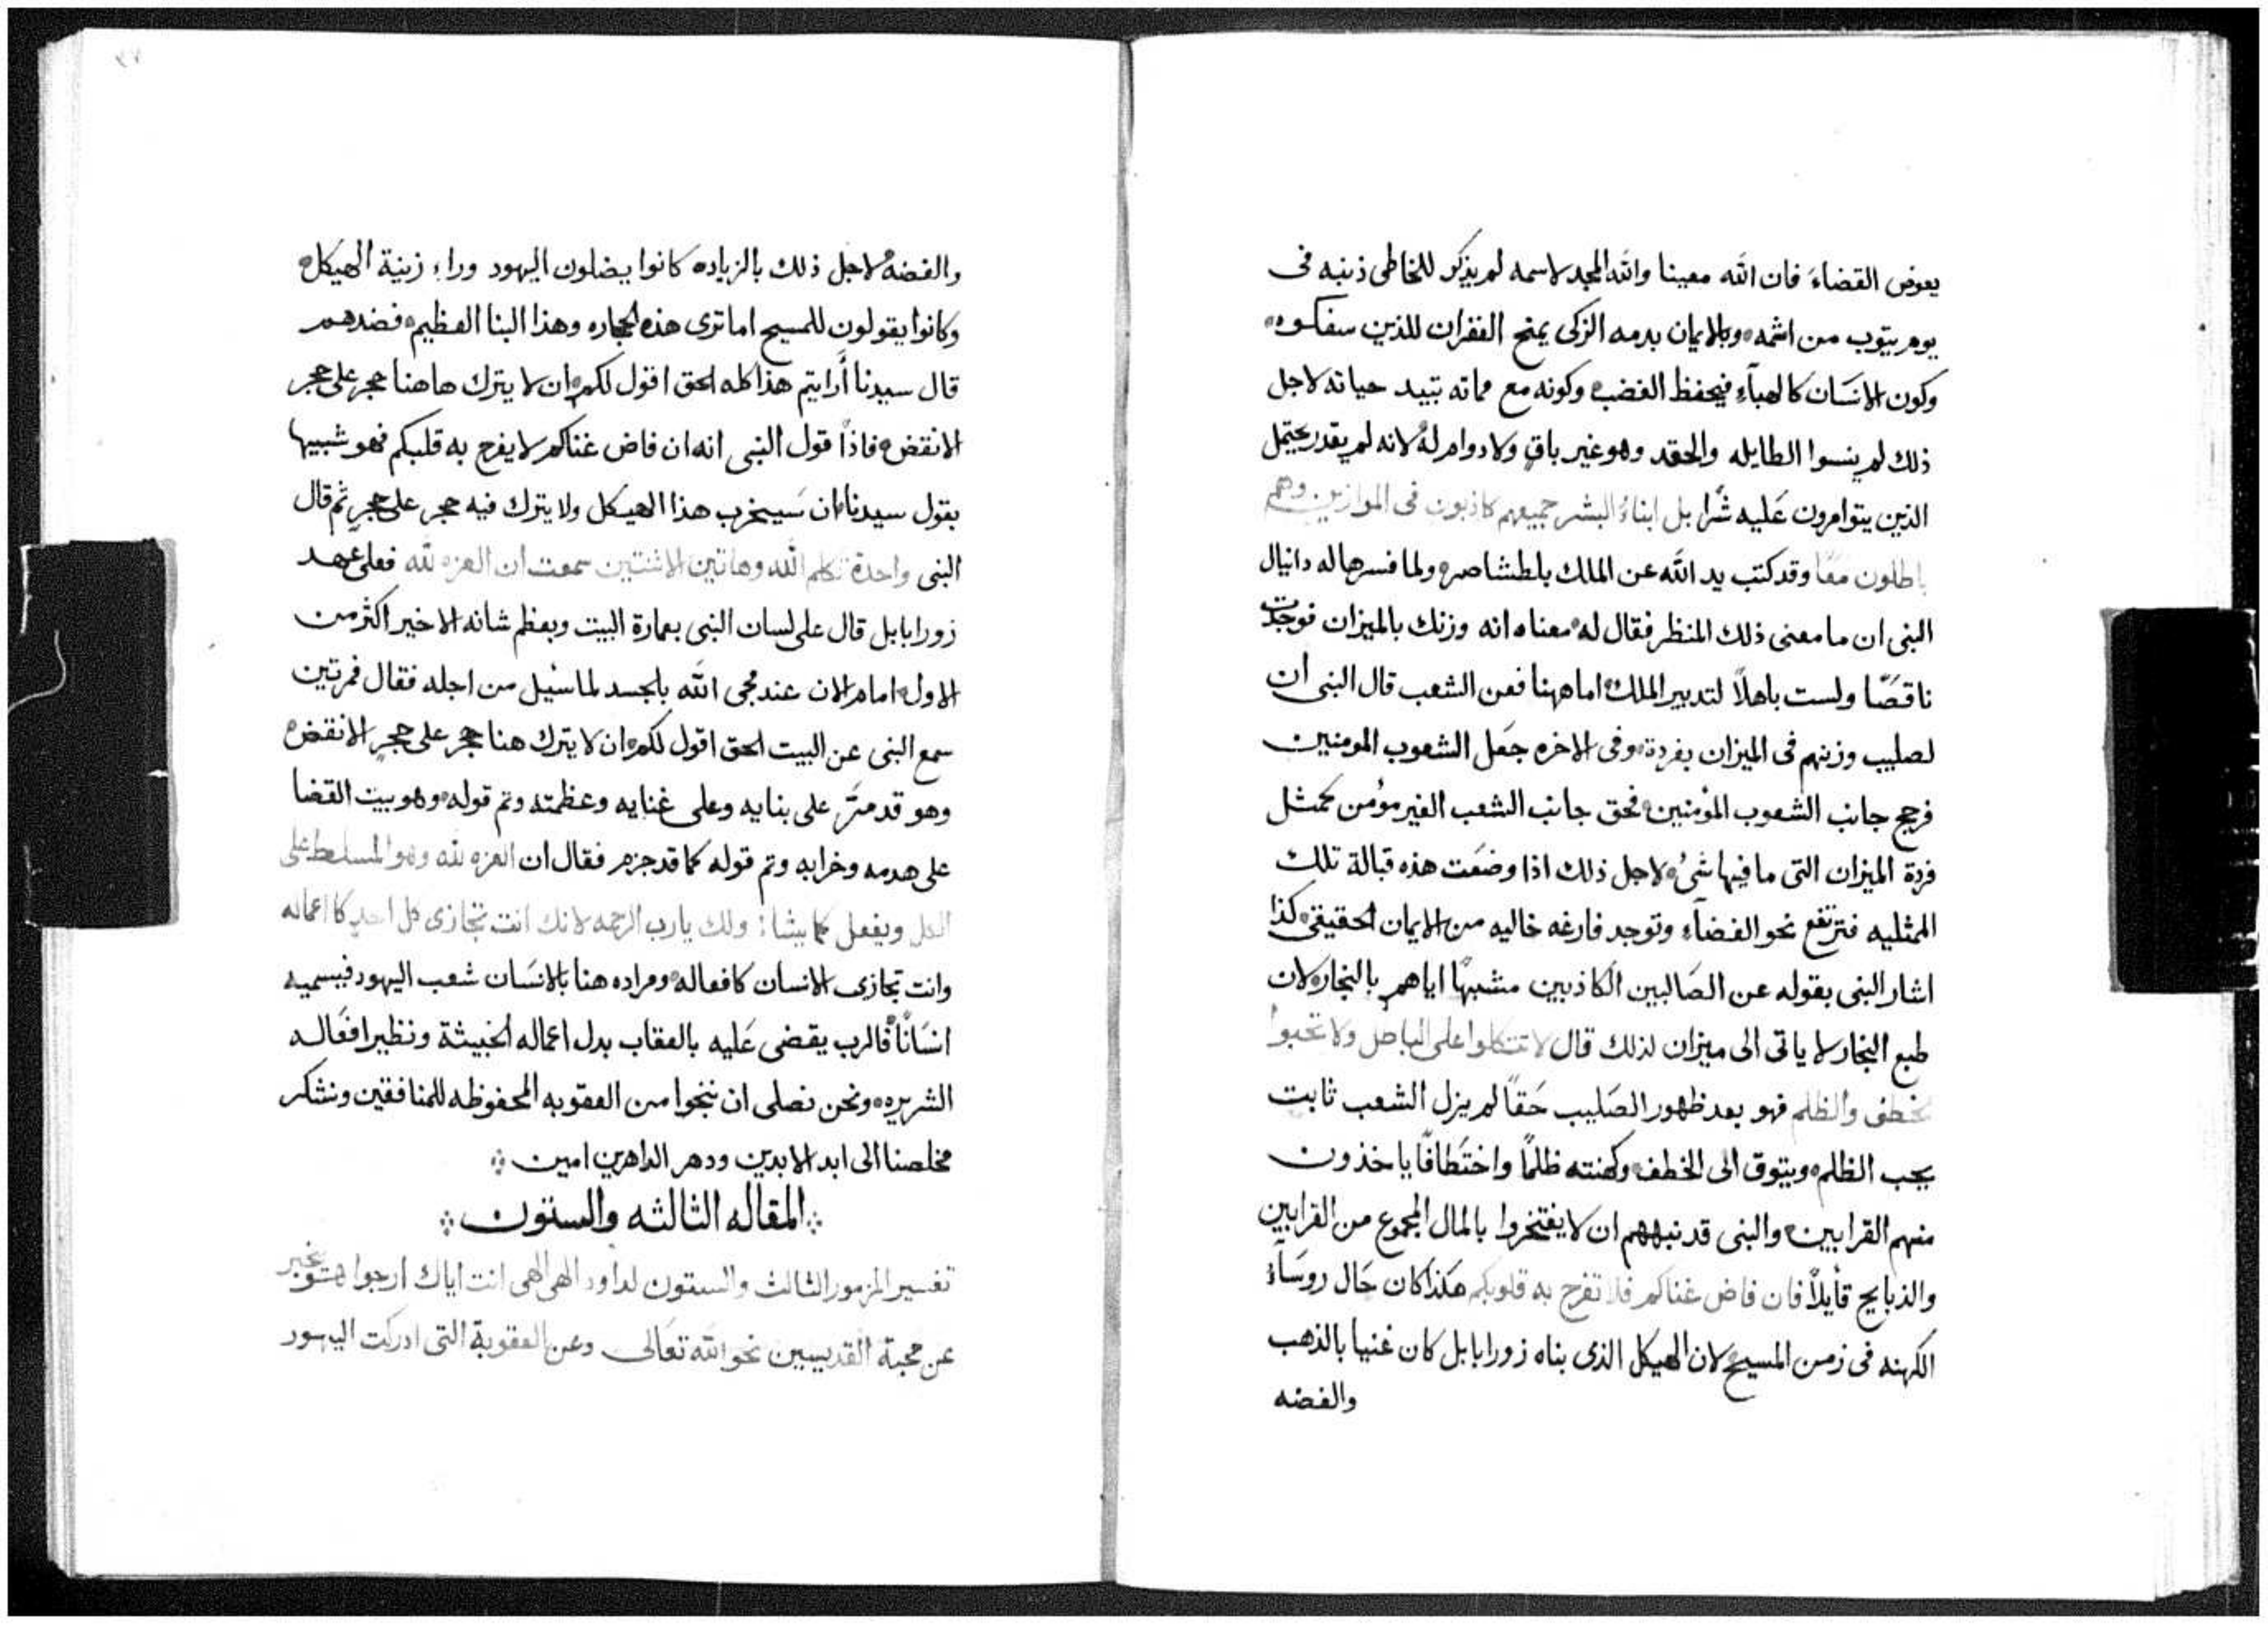 يعوض القضاء فان الله معينا والله المجد لاسمه لم يذكر للخاطى ذنبه فى
يوم يتوب من اثمه وبالايمان بدمه الزكى يمنح الغفران للذين سفكوه
وكون الانسان كالهباء فيحفظ الغضب وكونه مع مماته تبيد حياته لاجل
ذلك لم ينسوا الطايله والحقد وهو غير باق ولا دوام له لانه لم يقدر يحتمل
الذين يتوامرون عليه شرا بل ابناء البشر جميعهم كاذبون فى الموازين وهم
باطلون معًا وقد كتب يد الله عن الملك بلطشاصر ولما فسرها له دانيال
النبى ان ما معنى ذلك المنظر فقال له معناه انه وزنك بالميزان فوجدت
ناقصًا ولست باهلاً لتدبير الملك اما ههنا فعن الشعب قال النبى ان
لصليب وزنهم فى الميزان بفردة وفى الاخره جعل الشعوب المومنين
فرجح جانب الشعوب المؤمنين فحق جانب الشعب الغير مؤمن كمثل
فردة الميزان التى ما فيها شىء لاجل ذلك اذا وضعت هذه قبالة تلك
الممثليه فترتفع نحو الفضاء وتوجد فارغه خاليه من الايمان الحقيقى كذا
اشار النبى بقوله عن الصالبين الكاذبين مشبهًا اياهم بالبخار لان
طبع البخار لا ياتى الى ميزان لذلك قال لا تتكلوا على الباطل ولا تحبوا
لخطف والظلم فهو بعد ظهور الصليب حقًا لم يزل الشعب ثابت
يحب الظلم ويتوق الى الخطف وكهنته ظلمًا واختطافًا ياخذون
منهم القرابين والنبى قد نبههم ان لا يفتخروا بالمال المجموع من القرابين
والذبايح قايلاً فان فاض غناكم فلا تفرح به قلوبكم هكذا كان حال روساء
الكهنه فى زمن المسيح لان الهيكل الذى بناه زورابابل كان غنيا بالذهب
والفضه
والفضه لاجل ذلك بالزياده كانوا يضلون اليهود وراء زينة الهيكل
وكانوا يقولون للمسيح اما ترى هذه الحجاره وهذا البنا العظيم فضدهم
قال سيدنا أرايتم هذا كله الحق اقول لكم ان لا يترك هاهنا حجر على حجر
الا نقض فاذًا قول النبى انه ان فاض غناكم لا يفرح به قلبكم فهو شبيها
بقول سيدنا ان سيخرب هذا الهيكل ولا يترك فيه حجر على حجر ثم قال
النبى واحدة تكلم الله وهاتين الاثنتين سمعت ان العزه لله فعلى عهد
زورابابل قال على لسان النبى بعمارة البيت وبعظم شانه الاخير اكثر من
الاول امام الان عند مجى الله بالجسد لما سيل من اجله فقال فمرتين
سمع النبى عن البيت الحق اقول لكم ان لا يترك هنا حجر على حجر الا نقض
وهو قد مرَّ على بنايه وعلى غنايه وعظمته وتم قوله وهو بيت القضا
على هدمه وخرابه وتم قوله كما قد جزم فقال ان العزه لله وهو المسلط على
الكل ويفعل كما يشا: ولك يا رب الرحمه لانك انت تجازى كل احد كاعماله
وانت تجازى الانسان كافعاله ومراده هنا بالانسان شعب اليهود فيسميه
انسانًا فالرب يقضى عليه بالعقاب بدل اعماله الخبيثة ونظير افعاله
الشريره ونحن نصلى ان ننجوا من العقوبه المحفوظه للمنافقين ونشكر
مخلصنا الى ابد الابدين ودهر الداهرين امين
المقاله الثالثه والستون
تفسير المزمور الثالث والستون لداود الهى الهى انت اياك ارجوا يخبر
عن محبة القديسين نحو الله تعالى وعن العقوبة التى ادركت اليهود